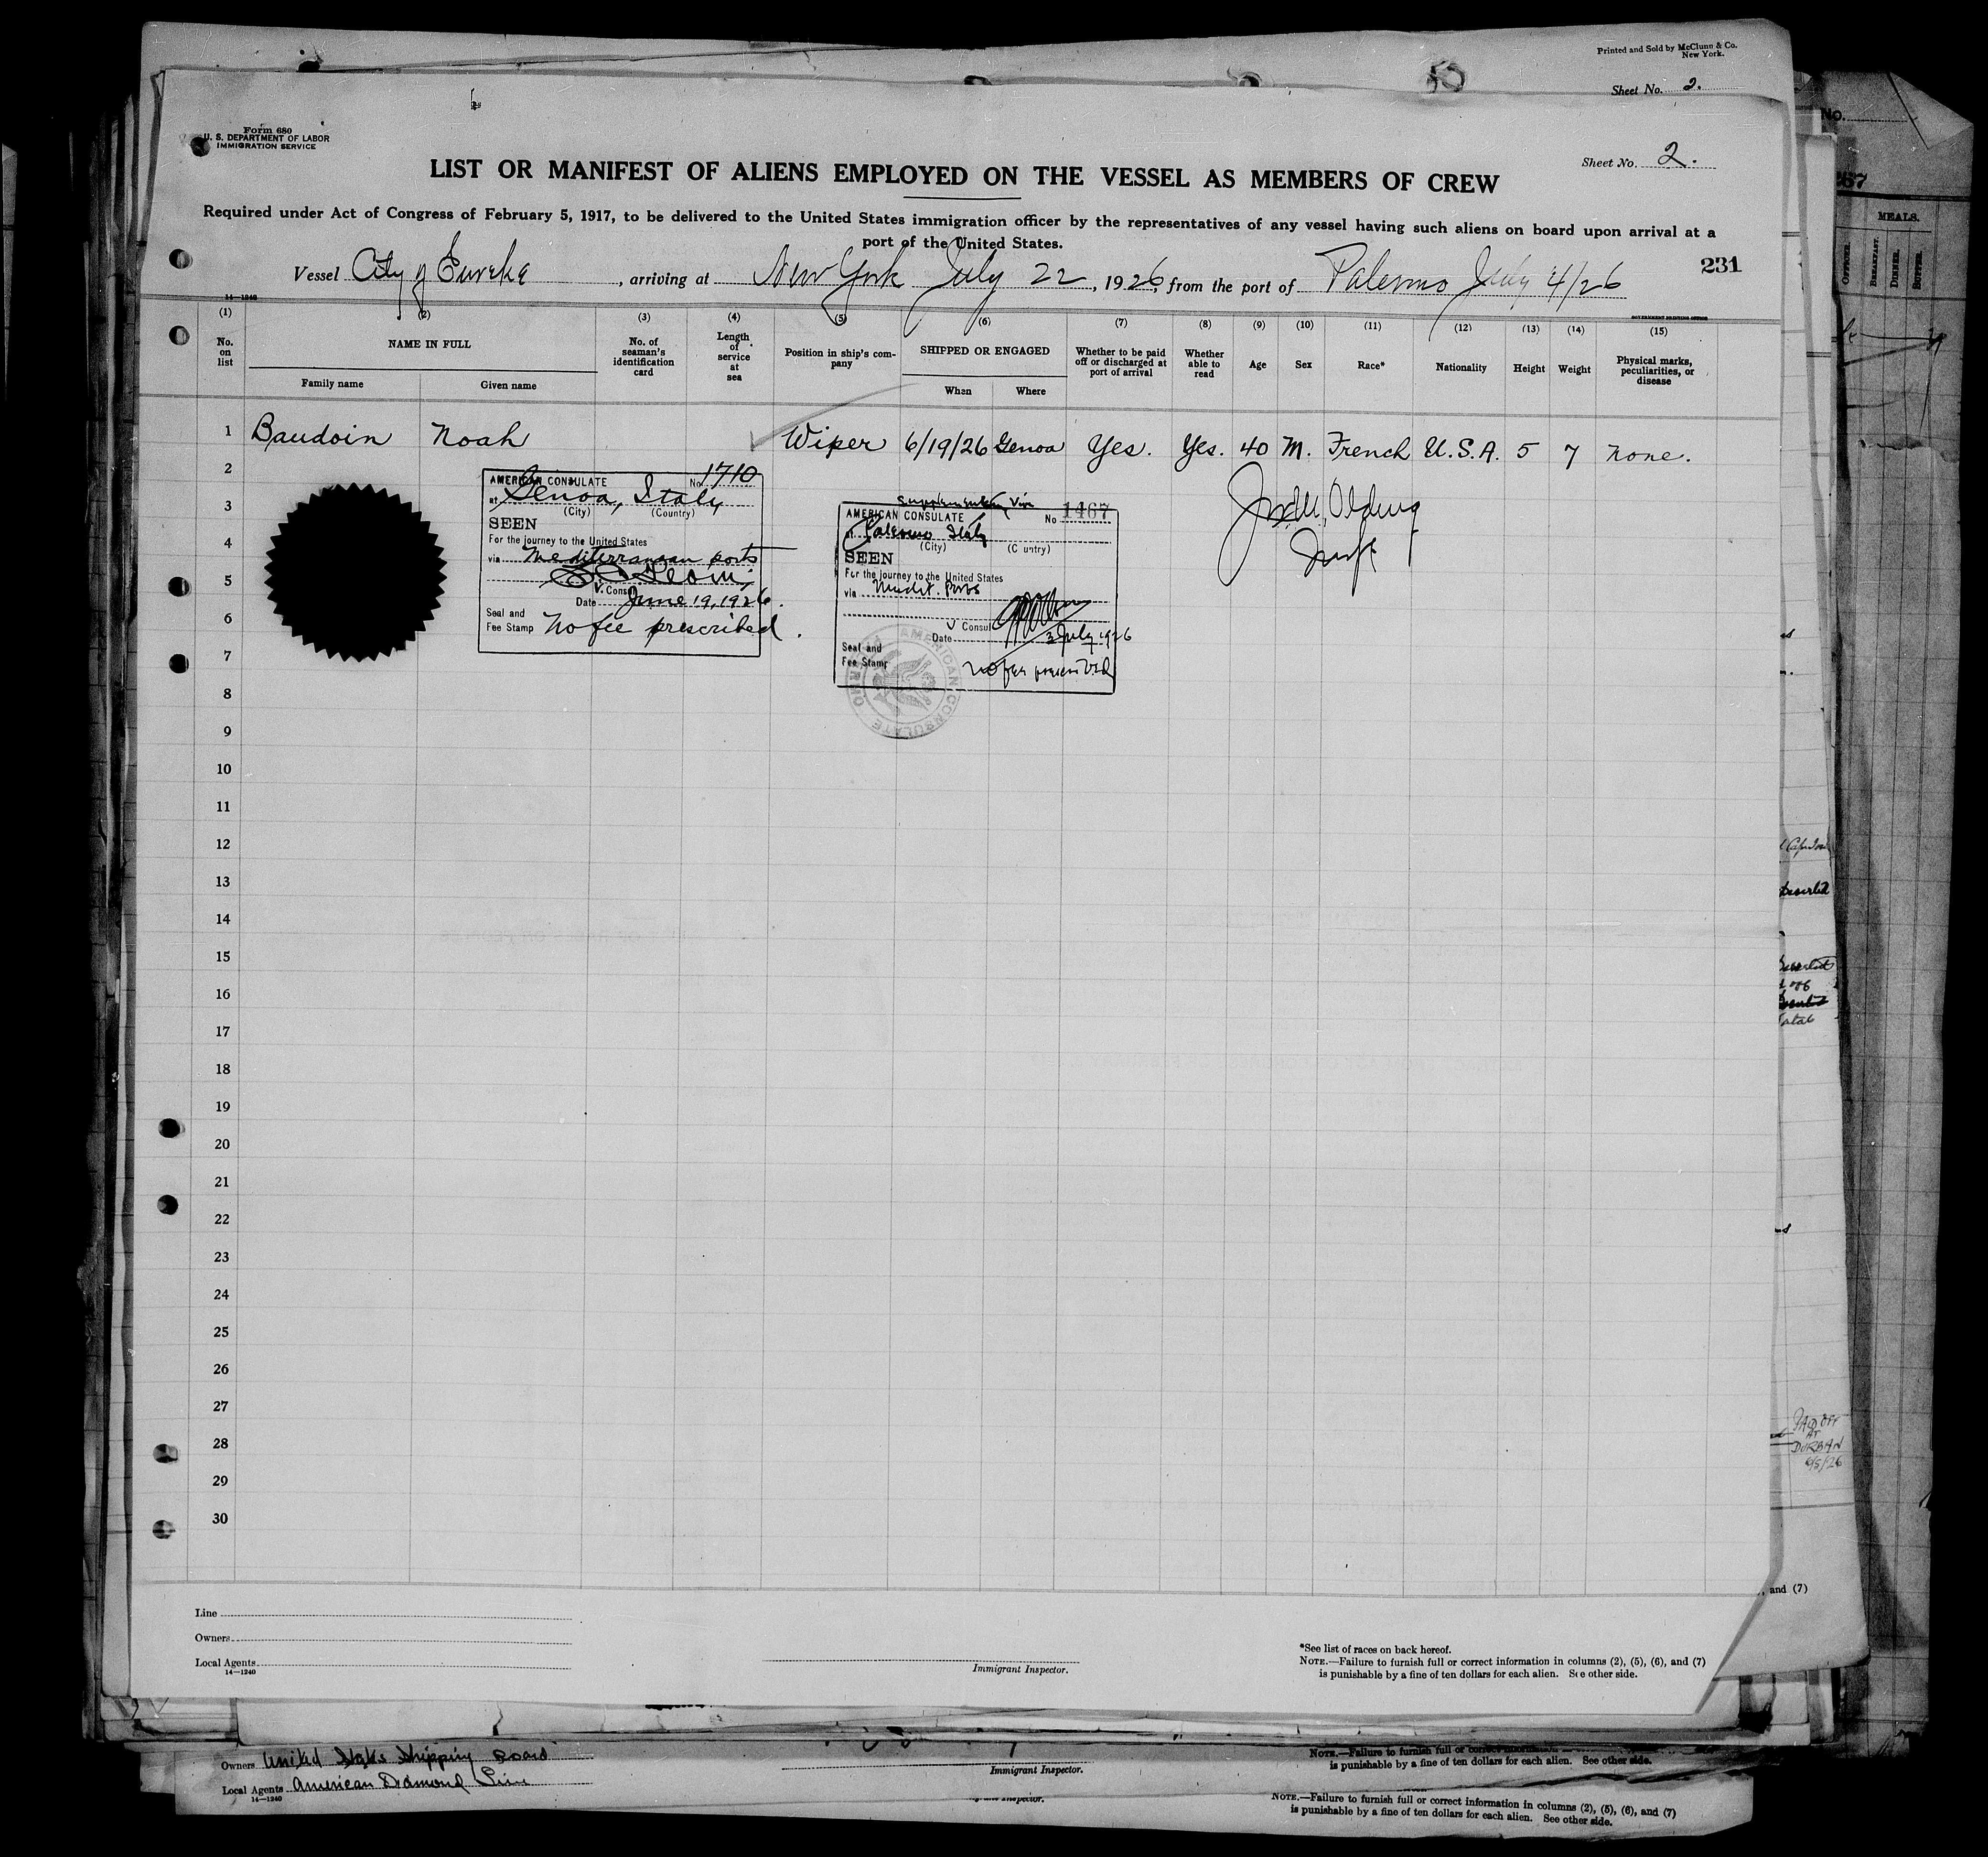 Printed and Sold by McClunn & Co.
New York.
Sheet No. 2.
Form 680
U. S. DEPARTMENT OF LABOR
IMMIGRATION SERVICE
Sheet No. 2.
LIST OR MANIFEST OF ALIENS EMPLOYED ON THE VESSEL AS MEMBERS OF CREW
Required under Act of Congress of February 5, 1917, to be delivered to the United States immigration officer by the representatives of any vessel having such aliens on board upon arrival at a
port of the United States.
231
Vessel City of Eureka, arriving at New York July 22, 1926, from the port of Palermo July 4/26
14—1240
GOVERNMENT PRINTING OFFICE
(1) (2) (3) (4) (5) (6) (7) (8) (9) (10) (11) (12) (13) (14) (15)
No. on list
NAME IN FULL
Family name
Given name
No. of seaman's identification card
Length of service at sea
Position in ship's company
SHIPPED OR ENGAGED
When
Where
Whether to be paid off or discharged at port of arrival
Whether able to read
Age
Sex
Race*
Nationality
Height
Weight
Physical marks, peculiarities, or disease
1 Baudoin Noah Wiper 6/19/26 Genoa Yes. Yes. 40 M. French U.S.A. 5 7 none.
2
3
4
5
6
7
8
9
10
11
12
13
14
15
16
17
18
19
20
21
22
23
24
25
26
27
28
29
30
AMERICAN CONSULATE No. 1710
at Genoa, Italy
(City) (Country)
SEEN
For the journey to the United States
via Mediterranean ports
V. Consul
Date June 19, 1926.
Seal and
Fee Stamp No fee prescribed.
Supplemental Visa
AMERICAN CONSULATE No 1467
at Palermo Italy
(City) (C untry)
SEEN
For the journey to the United States
via Medit. Ports
V Consul
Date 3 July 1926
Seal and
Fee Stamp No fee prescribed
AMERICAN CONSULATE
PALERMO
Line
Owners
Local Agents
14—1240
Immigrant Inspector.
*See list of races on back hereof.
NOTE.—Failure to furnish full or correct information in columns (2), (5), (6), and (7)
is punishable by a fine of ten dollars for each alien. See other side.
MEALS.
BREAKFAST.
DINNER.
SUPPER.
Deserted
PAID OFF
AT
DURBAN
6/5/26
, and (7)
Owners United States Shipping Board
Local Agents American Diamond Line
14—1240
Immigrant Inspector.
NOTE.—Failure to furnish full or correct information
is punishable by a fine of ten dollars for each alien. See other side.
NOTE.—Failure to furnish full or correct information in columns (2), (5), (6), and (7)
is punishable by a fine of ten dollars for each alien. See other side.